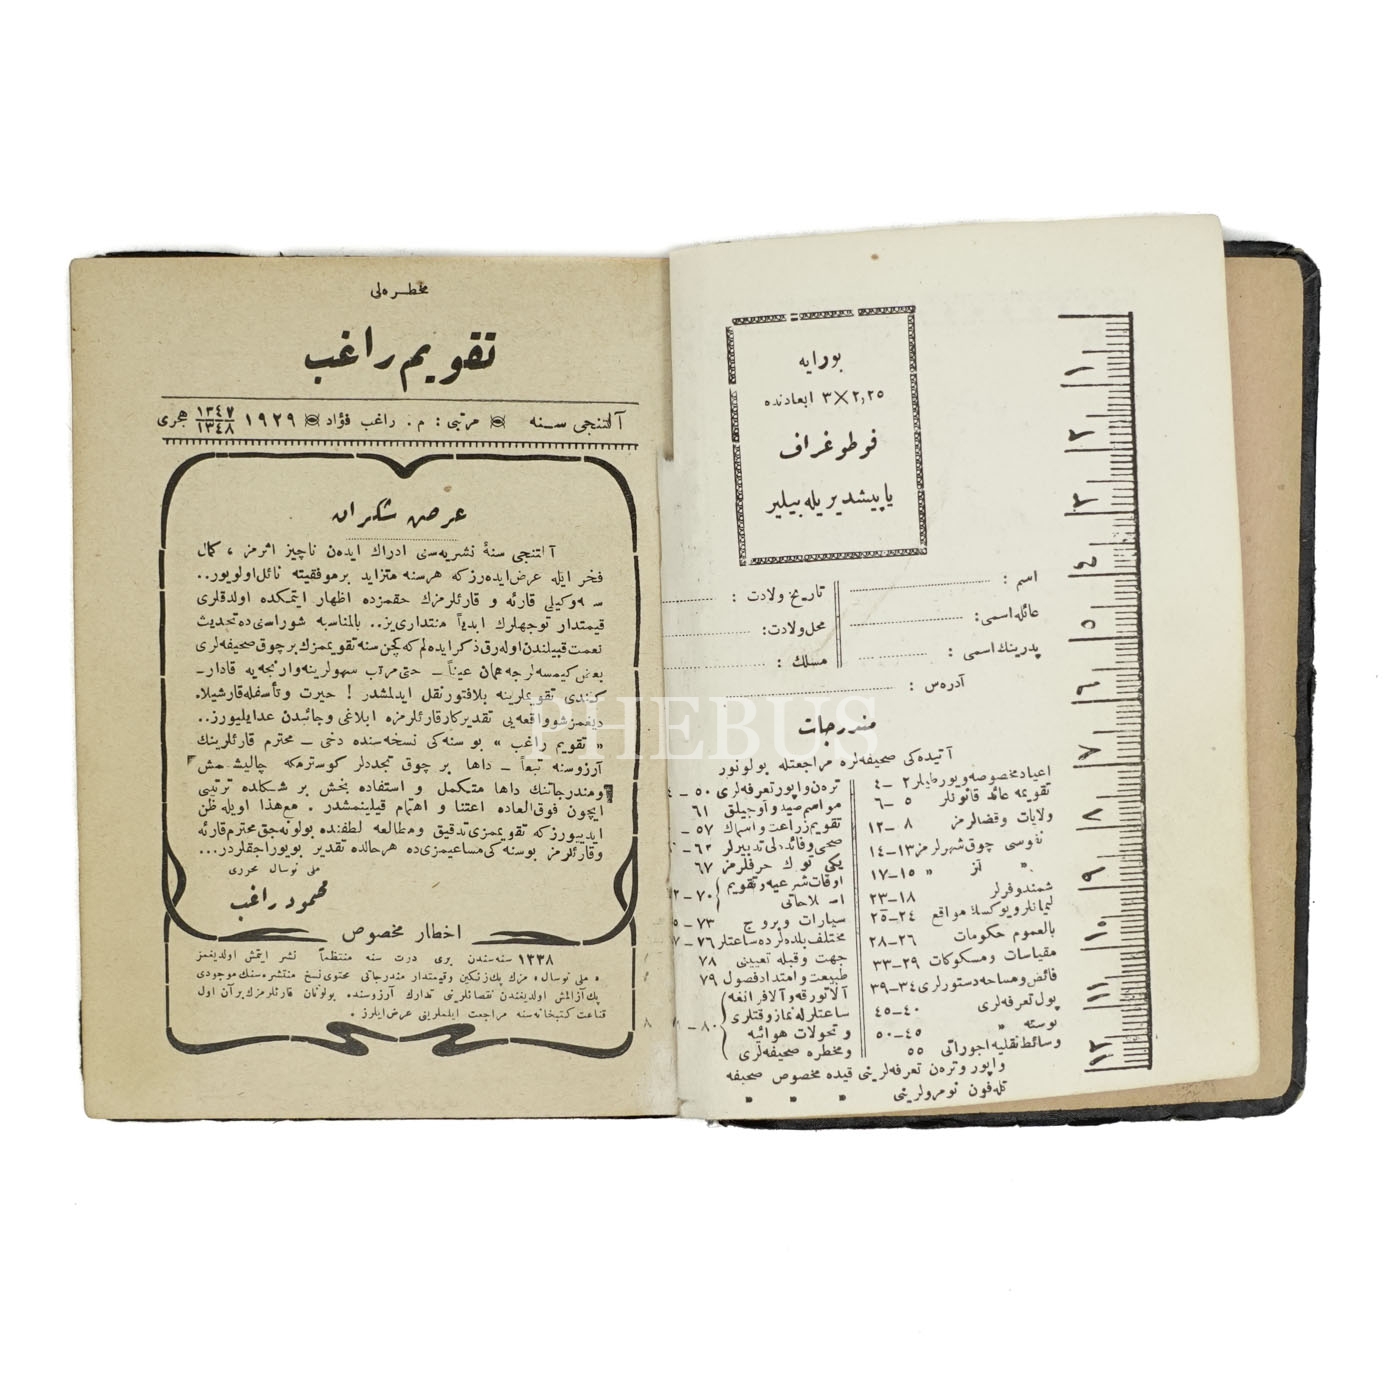 مخطره لی
تقویم راغب
آلتنجی سنه
مرتبی : م. راغب فؤاد
۱۹۲۹
۱۳٤۷
۱۳٤۸
هجری
عرض شکران
آلتنجی سنهٔ نشریه سنی ادراك ایدەن ناچیز اثرمز ، کمال
فخر ایله عرض ایدەرز که هر سنه متزاید بر موفقیته نائل اولویور..
سەوکیلی قارئه و قارئلرمزك حقمزده اظهار ایتمکده اولدقلری
قیمتدار توجهلرك ابدیاً منتداری یز.. بالمناسبه شوراسنی ده تحدیث
نعمت قبیلندن اوله رق ذکر ایدەلم که کچن سنه تقویممزك بر چوق صحیفه لری
بعض کیمسه لرجه همان عیناً – حتی مرتب سهولرینه وارنجه یه قادار –
کندی تقویملرینه بلافتور نقل ایدلمشدر ! حیرت و تأسفله قارشیلا-
دیغمز شو واقعه یی تقدیرکار قارئلرمزه ابلاغی وجائبدن عد ایلیورز..
« تقویم راغب » بو سنه کی نسخه سنده دخی – محترم قارئلرینك
آرزوسنه تبعاً – داها بر چوق تجددلر کوسترمکه چالیشمش
و مندرجاتنك داها متکمل و استفاده بخش بر شکلده ترتیبی
ایچون فوق العاده اعتنا و اهتمام قیلینمشدر . مع هذا اویله ظن
ایدییورز که تقویممزی تدقیق و مطالعه لطفنده بولونه جق محترم قارئه
و قارئلرمز بو سنه کی مساعیمزی ده هر حالده تقدیر بویوراجقلردر...
ملی نوسال محرری
محمود راغب
اخطار مخصوص
۱۳۳۸ سنه سندن بری درت سنه منتظماً نشر ایتمش اولدیغمز
« ملی نوسال » مزك پك زنکین و قیمتدار مندرجاتی محتوی نسخ منتشره سنك موجودی
پك آزالمش اولدیغندن نقصانلرینی تدارك آرزوسنده بولونان قارئلرمزك بر آن اول
قناعت کتبخانه سنه مراجعت ایلملرینی عرض ایلرز .
بورایه
۲,۲٥ × ۳ ابعادنده
فوطوغراف
یاپیشدیریله بیلیر
اسم :
تاریخ ولادت :
عائله اسمی :
محل ولادت :
پدرینك اسمی :
مسلك :
آدرەس :
مندرجات
آتیده کی صحیفه لره مراجعتله بولونور
اعیاد مخصوصه و یورطیلر ۲–٤
تقویمه عائد قانونلر ٥–٦
ولایات و قضالرمز ۸–۱۲
نفوسی چوق شهرلرمز ۱۳–۱٤
» آز » ۱٥–۱۷
شمندوفرلر ۱۸–۲۳
لیمانلر و یوکسك مواقع ۲٤–۲٥
بالعموم حکومات ۲٦–۲۸
مقیاسات و مسکوکات ۲۹–۳۳
فائض و مساحه دستورلری ۳٤–۳۹
پول تعرفه لری ٤۰–٤٥
پوسته » ٤٥–٥۰
وسائط نقلیه اجوراتی ٥٥
ترەن و واپور تعرفه لری ٥۰–
مواسم صید و آوجیلق ٦۱
تقویم زراعت و اسماك ٥۷–
صحی و فائدەلی تدبیرلر ٦۲–
یکی تورك حرفلرمز ٦۷
اوقات شرعیه و تقویم
اصطلاحاتی ۷۰–
سیارات و بروج ۷۳–
مختلف بلده لرده ساعتلر ۷٦–
جهت و قبله تعیینی ۷۸
طبیعت و امتداد فصول ۷۹
آلاتورقه و آلافرانغه
ساعتلرله نماز وقتلری
و تحولات هوائیه
و مخطره صحیفه لری
۸۰–
واپور و ترەن تعرفه لرینی قیده مخصوص صحیفه
تله فون نومرولرینی » » »
۱
۲
۳
٤
٥
٦
۷
۸
۹
۱۰
۱۱
۱۲
PHEBUS